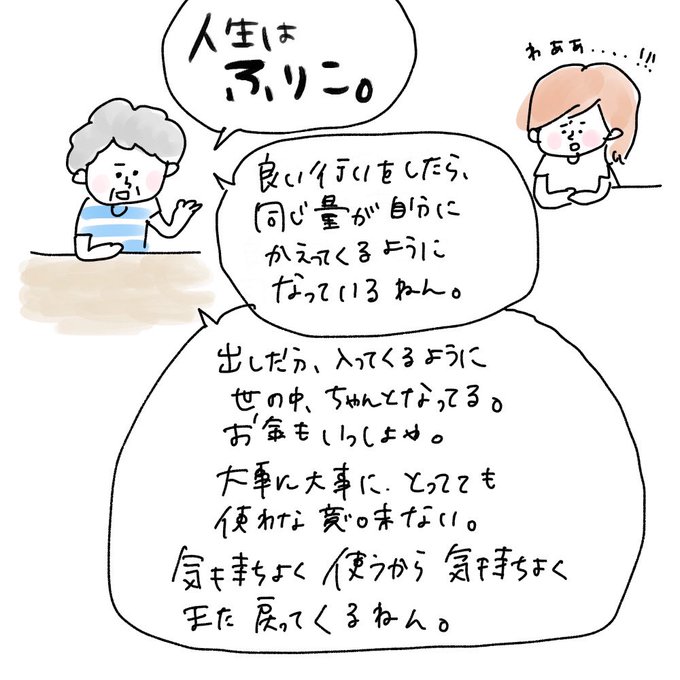 人生は
ふりこ。
わぁぁ....!!!
良い行いをしたら、
同じ量が自分に
かえってくるように
なっているねん。
出しただ分、入ってくるように
世の中、ちゃんとなってる。
お金もいっしょや。
大事に大事に、とってても
使わな意味ない。
気持ちよく使うから気持ちよく
また戻ってくるねん。